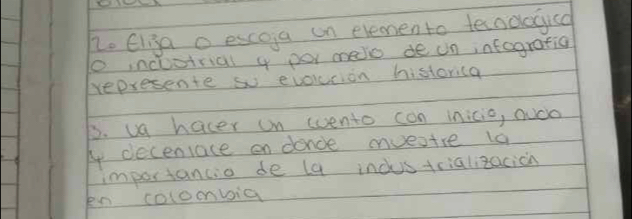 2. Elija o escoja un elemento tecnologico
o industrial y por medio de un infografia
represente su evolución historica
3. va hacer un cuento con inicio, nudo
y decenlace en donde muestre la
importancia de la industrialización
en colombia